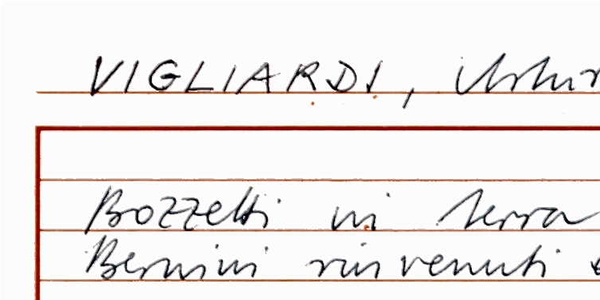 VIGLIARDI,
Bozzetti in terra
Bernini rinvenuti